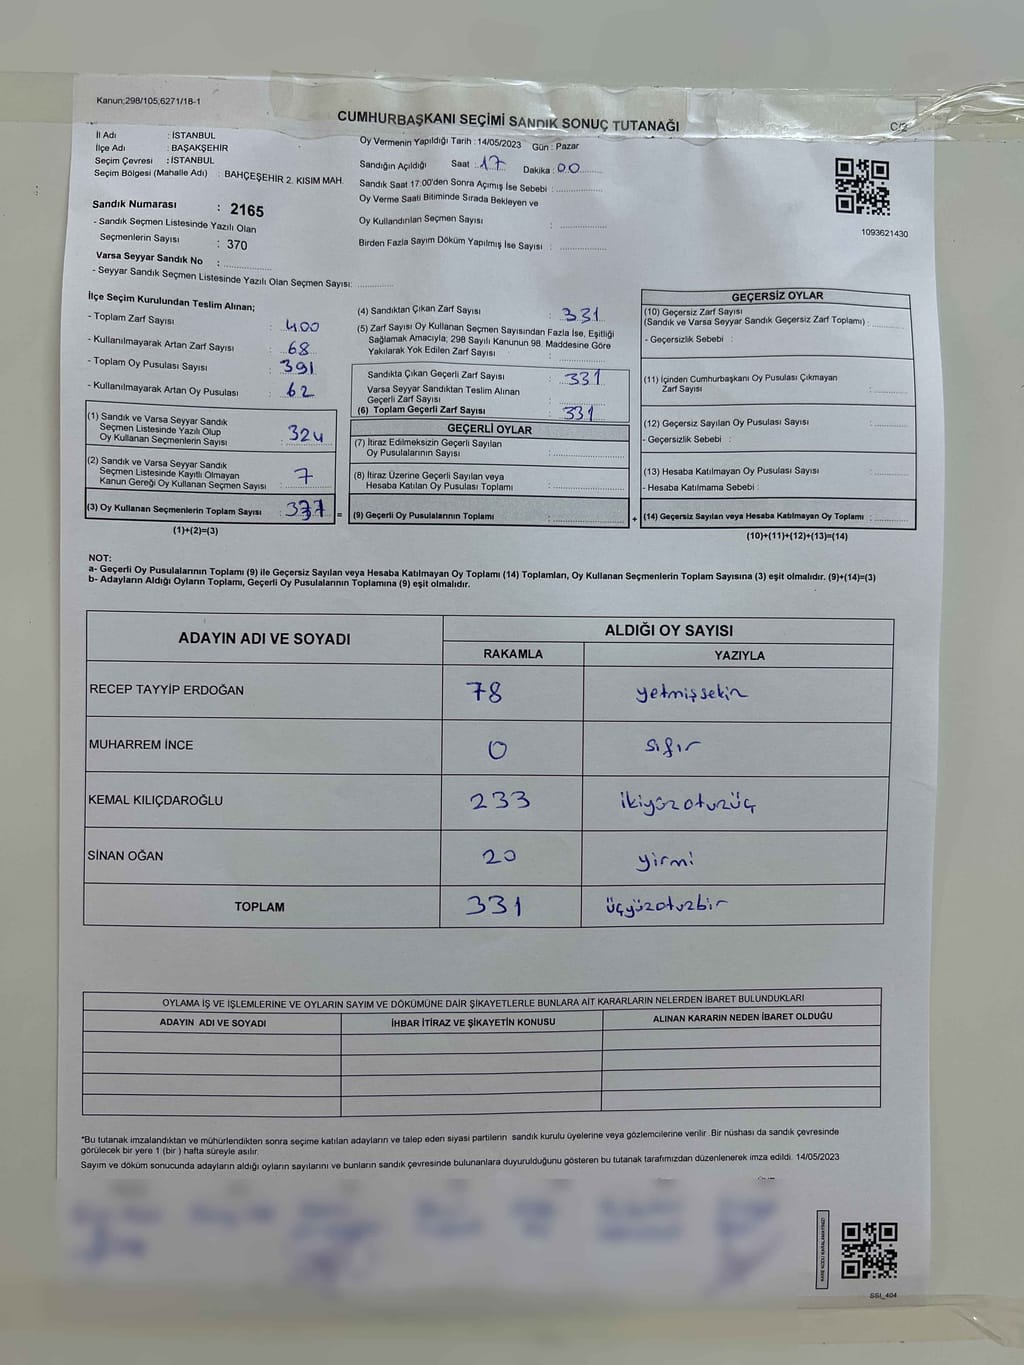 Kanun;298/105,6271/18-1
CUMHURBAŞKANI SEÇİMİ SANDIK SONUÇ TUTANAĞI
C/2
İl Adı : İSTANBUL
İlçe Adı : BAŞAKŞEHİR
Seçim Çevresi : İSTANBUL
Seçim Bölgesi (Mahalle Adı) : BAHÇEŞEHİR 2. KISIM MAH.
Sandık Numarası : 2165
- Sandık Seçmen Listesinde Yazılı Olan
Seçmenlerin Sayısı : 370
Varsa Seyyar Sandık No :
- Seyyar Sandık Seçmen Listesinde Yazılı Olan Seçmen Sayısı:
Oy Vermenin Yapıldığı Tarih : 14/05/2023 Gün : Pazar
Sandığın Açıldığı Saat : 17 Dakika : 00
Sandık Saat 17:00'den Sonra Açımış İse Sebebi :
Oy Verme Saati Bitiminde Sırada Bekleyen ve
Oy Kullandırılan Seçmen Sayısı :
Birden Fazla Sayım Döküm Yapılmış İse Sayısı :
1093621430
İlçe Seçim Kurulundan Teslim Alınan;
- Toplam Zarf Sayısı : 400
- Kullanılmayarak Artan Zarf Sayısı : 68
- Toplam Oy Pusulası Sayısı : 391
- Kullanılmayarak Artan Oy Pusulası : 62
(1) Sandık ve Varsa Seyyar Sandık
Seçmen Listesinde Yazılı Olup
Oy Kullanan Seçmenlerin Sayısı : 324
(2) Sandık ve Varsa Seyyar Sandık
Seçmen Listesinde Kayıtlı Olmayan
Kanun Gereği Oy Kullanan Seçmen Sayısı : 7
(3) Oy Kullanan Seçmenlerin Toplam Sayısı :
(1)+(2)=(3)
(4) Sandıktan Çıkan Zarf Sayısı : 331
(5) Zarf Sayısı Oy Kullanan Seçmen Sayısından Fazla İse, Eşitliği
Sağlamak Amacıyla; 298 Sayılı Kanunun 98. Maddesine Göre
Yakılarak Yok Edilen Zarf Sayısı :
Sandıkta Çıkan Geçerli Zarf Sayısı : 331
Varsa Seyyar Sandıktan Teslim Alınan
Geçerli Zarf Sayısı :
(6) Toplam Geçerli Zarf Sayısı : 331
GEÇERLİ OYLAR
(7) İtiraz Edilmeksizin Geçerli Sayılan
Oy Pusulalarının Sayısı :
(8) İtiraz Üzerine Geçerli Sayılan veya
Hesaba Katılan Oy Pusulası Toplamı :
= (9) Geçerli Oy Pusulalarının Toplamı :
GEÇERSİZ OYLAR
(10) Geçersiz Zarf Sayısı
(Sandık ve Varsa Seyyar Sandık Geçersiz Zarf Toplamı) :
- Geçersizlik Sebebi :
(11) İçinden Cumhurbaşkanı Oy Pusulası Çıkmayan
Zarf Sayısı :
(12) Geçersiz Sayılan Oy Pusulası Sayısı :
- Geçersizlik Sebebi :
(13) Hesaba Katılmayan Oy Pusulası Sayısı :
- Hesaba Katılmama Sebebi :
+ (14) Geçersiz Sayılan veya Hesaba Katılmayan Oy Toplamı :
(10)+(11)+(12)+(13)=(14)
NOT:
a- Geçerli Oy Pusulalarının Toplamı (9) ile Geçersiz Sayılan veya Hesaba Katılmayan Oy Toplamı (14) Toplamları, Oy Kullanan Seçmenlerin Toplam Sayısına (3) eşit olmalıdır. (9)+(14)=(3)
b- Adayların Aldığı Oyların Toplamı, Geçerli Oy Pusulalarının Toplamına (9) eşit olmalıdır.
ADAYIN ADI VE SOYADI
ALDIĞI OY SAYISI
RAKAMLA YAZIYLA
RECEP TAYYİP ERDOĞAN 78 yetmişsekiz
MUHARREM İNCE 0 sıfır
KEMAL KILIÇDAROĞLU 233 ikiyüzotuzüç
SİNAN OĞAN 20 yirmi
TOPLAM 331 üçyüzotuzbir
OYLAMA İŞ VE İŞLEMLERİNE VE OYLARIN SAYIM VE DÖKÜMÜNE DAİR ŞİKAYETLERLE BUNLARA AİT KARARLARIN NELERDEN İBARET BULUNDUKLARI
ADAYIN ADI VE SOYADI İHBAR İTİRAZ VE ŞİKAYETİN KONUSU ALINAN KARARIN NEDEN İBARET OLDUĞU
*Bu tutanak imzalandıktan ve mühürlendikten sonra seçime katılan adayların ve talep eden siyasi partilerin sandık kurulu üyelerine veya gözlemcilerine verilir. Bir nüshası da sandık çevresinde
görülecek bir yere 1 (bir ) hafta süreyle asılır.
Sayım ve döküm sonucunda adayların aldığı oyların sayılarını ve bunların sandık çevresinde bulunanlara duyurulduğunu gösteren bu tutanak tarafımızdan düzenlenerek imza edildi. 14/05/2023
KARE KODU KARALAMAYINIZ!
SSI_404